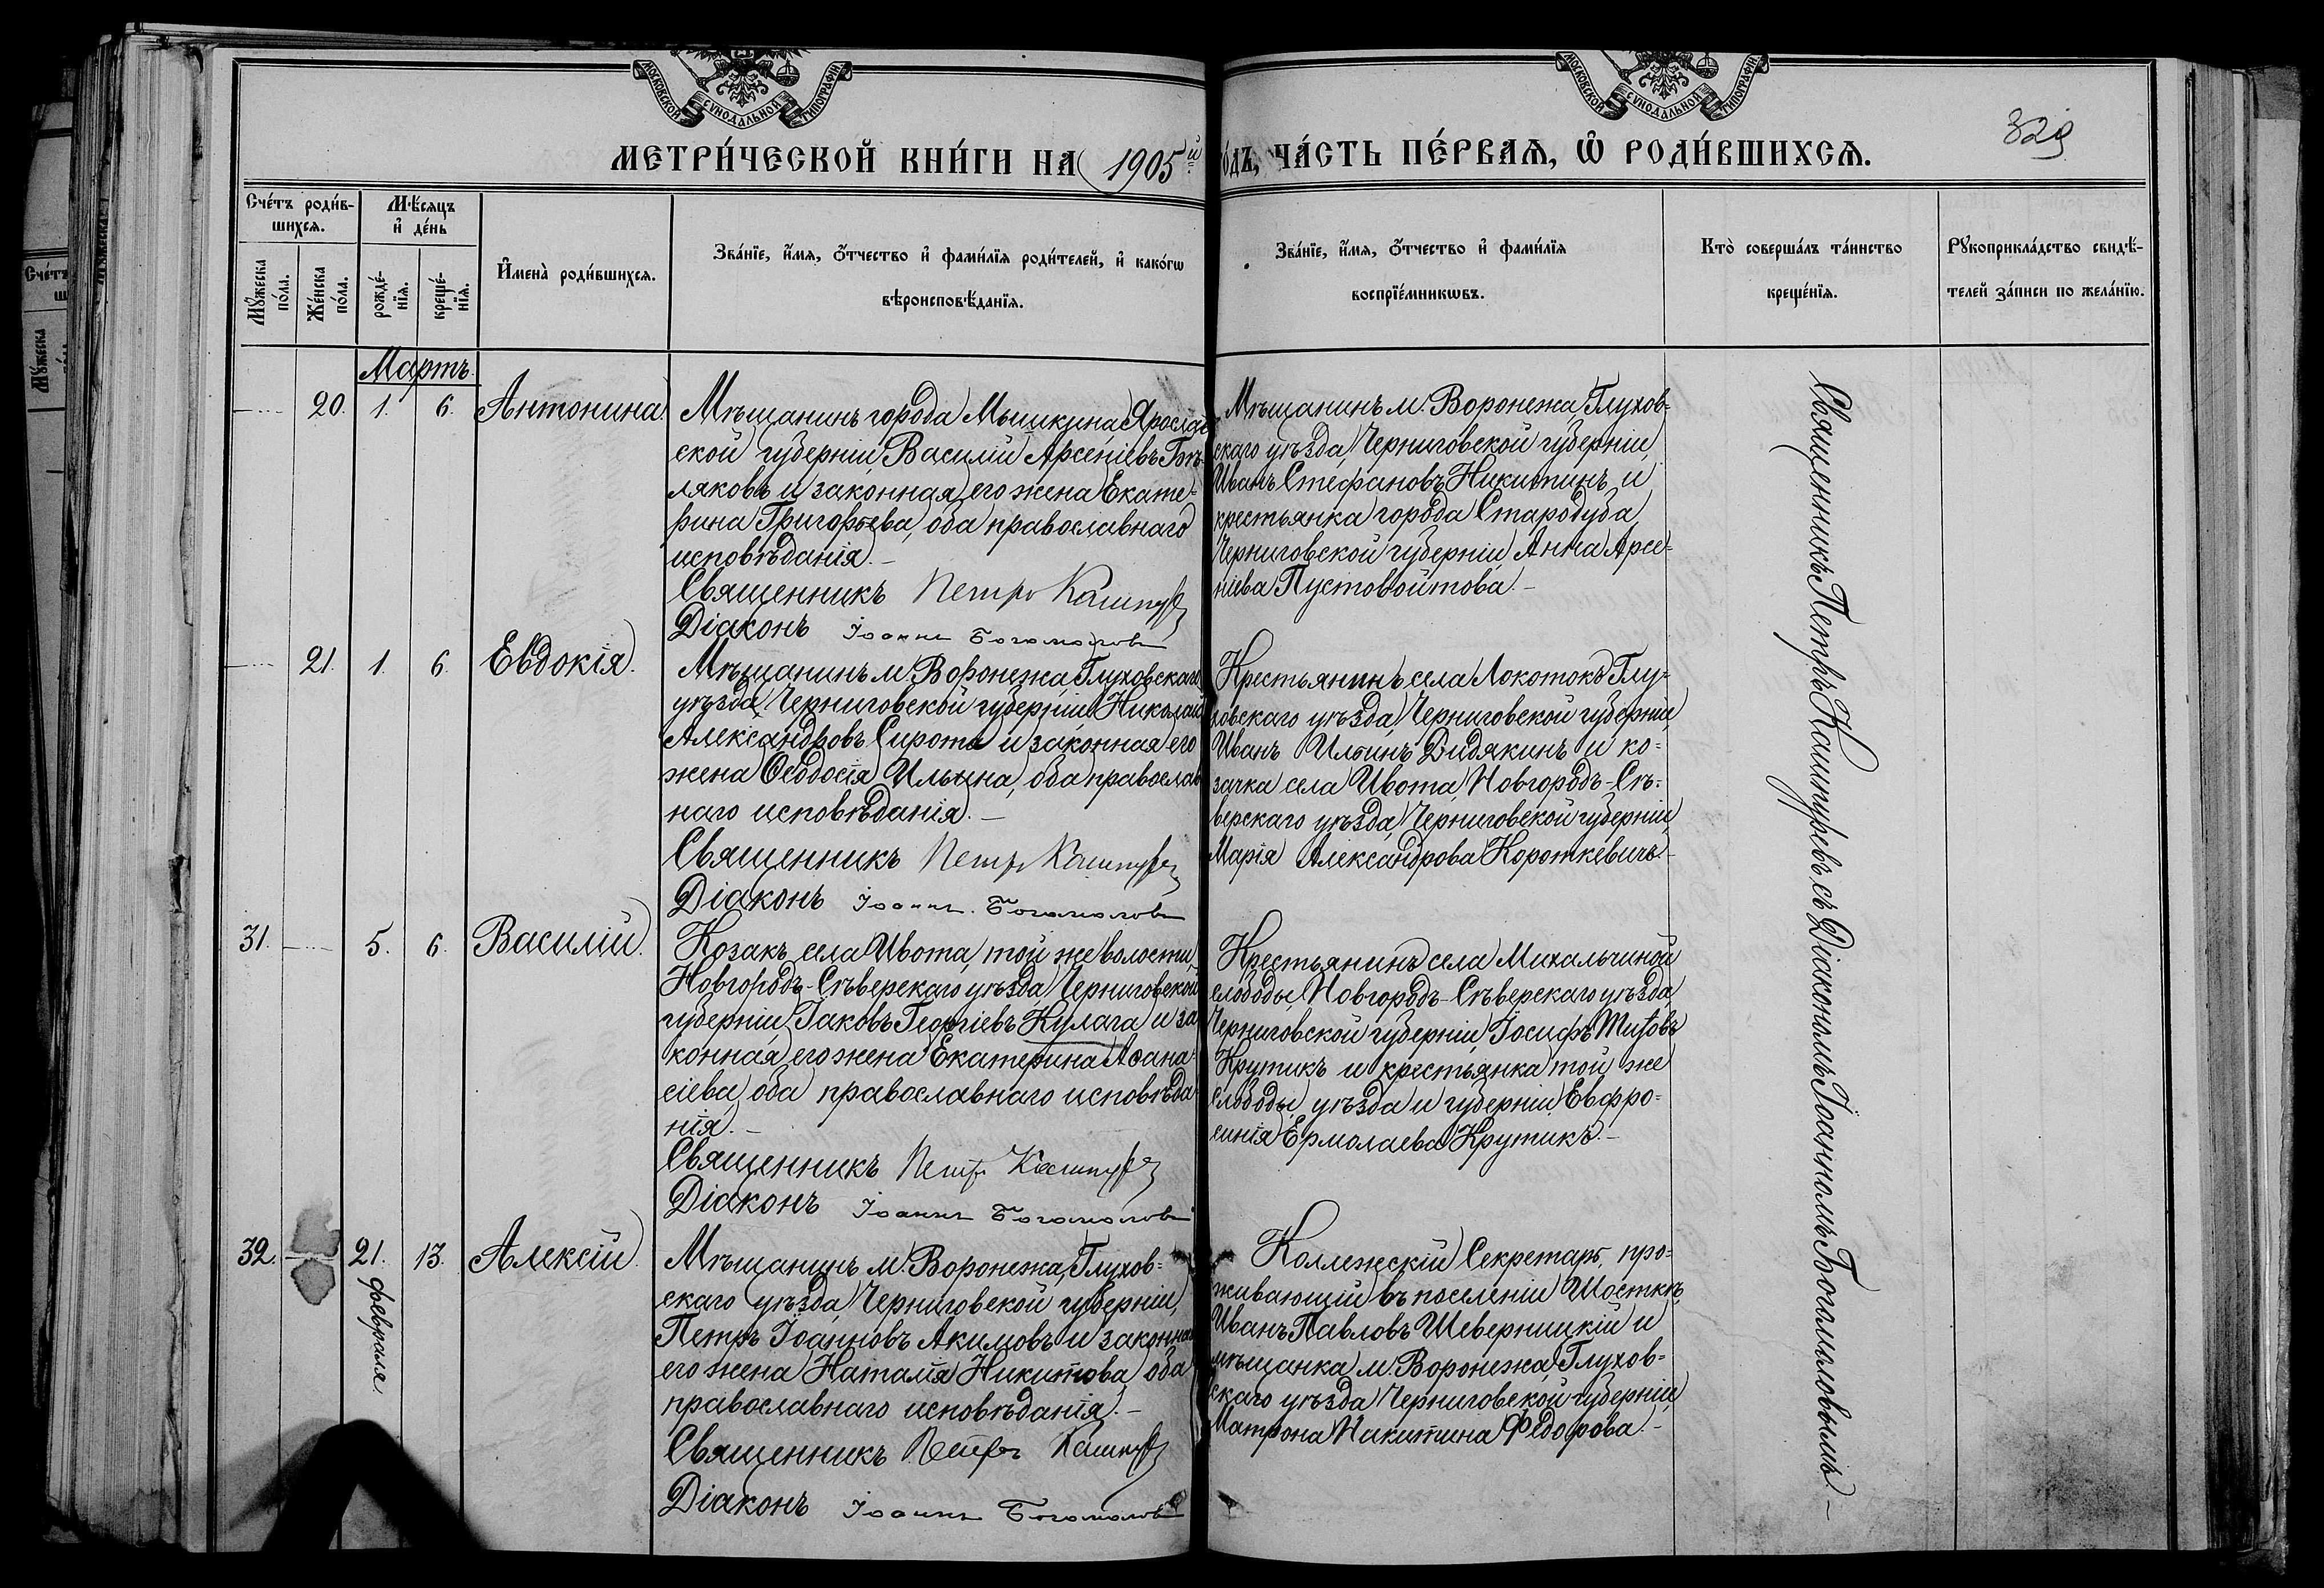 МОСКОВСКОЙ СѴНОДАЛЬНОЙ ТИПОГРАФІИ
МОСКОВСКОЙ СѴНОДАЛЬНОЙ ТИПОГРАФІИ
329
МЕТРИ́ЧЕСКОЙ КНИ́ГИ НА 1905й
о́дъ, ЧА́СТЬ ПЕ́РВАѦ, Ѡ҆ РОДИ́ВШИХСѦ.
Сче́тъ роди́в-
шихсѧ.
Мꙋ́жеска
по́ла.
Же́нска
по́ла.
Мѣ́сѧцъ
и҆ де́нь
рожде́-
нїѧ.
креще́-
нїѧ.
И҆мена̀ роди́вшихсѧ.
Зва́нїе, и҆́мѧ, ѻ҆́тчество и҆ фами́лїѧ роди́телей, и҆ како́гѡ
вѣроисповѣ́данїѧ.
Зва́нїе, и҆́мѧ, ѻ҆́тчество и҆ фами́лїѧ
воспрїе́мникѡвъ.
Кто̀ соверша́лъ та́инство
креще́нїѧ.
Рꙋкоприкла́дство свидѣ́-
телей за́писи по жела́нїю.
Мартъ.
20. 1. 6. Антонина.
Мѣщанинъ города Мышкина, Ярослав
ской губерніи, Василій Арсеніевъ Бѣ-
ляковъ и законная его жена Екате-
рина Григорьева, оба православнаго
исповѣданія.-
Священникъ Петръ Кашпуревъ
Діаконъ Іоаннъ Богомоловъ
Мѣщанинъ м. Воронежа, Глухов-
скаго уѣзда, Черниговской губерніи,
Иванъ Стефановъ Никитинъ и
крестьянка города Стародуба,
Черниговской губерніи, Анна Арсе-
ніева Пустовойтова.-
21. 1. 6. Евдокія.
Мѣщанинъ м. Воронежа, Глуховскаго
уѣзда, Черниговской губерніи, Николай
Александровъ Сирота и законная его
жена Ѳеодосія Ильина, оба православ
наго исповѣданія.-
Священникъ Петръ Кашпуревъ
Діаконъ Іоаннъ Богомоловъ
Крестьянинъ села Локотокъ, Глу-
ховскаго уѣзда, Черниговской губерніи,
Иванъ Ильинъ Дидякинъ и ко-
зачка села Ивота, Новгородъ-Сѣ-
верскаго уѣзда, Черниговской губерніи,
Марія Александрова Короткевичъ.-
31. 5. 6. Василій.
Козакъ села Ивота, той же волости,
Новгородъ-Сѣверскаго уѣзда, Черниговской
губерніи, Іаковъ Георгіевъ Кулага и за
конная его жена Екатерина Аѳана-
сіева, оба православнаго исповѣда-
нія.-
Священникъ Петръ Кашпуревъ
Діаконъ Іоаннъ Богомоловъ
Крестьянинъ села Михальчиной
слободы, Новгородъ-Сѣверскаго уѣзда
Черниговской губерніи, Іосифъ Титовъ
Крутикъ и крестьянка той же
слободы, уѣзда и губерніи, Евфро-
синія Ермолаева Крутикъ.-
32. 21. февраля. 13. Алексій.
Мѣщанинъ м. Воронежа, Глухов-
скаго уѣзда, Черниговской губерніи,
Петръ Іоанновъ Акимовъ и законная
его жена Наталія Никитова, оба
православнаго исповѣданія.-
Священникъ Петръ Кашпуревъ
Діаконъ Іоаннъ Богомоловъ
Коллежскій Секретарь, про-
живающій въ поселеніи Шосткѣ,
Иванъ Павловъ Шеверницкій и
мѣщанка м. Воронежа, Глухов-
скаго уѣзда, Черниговской губерніи,
Матрона Никитина Федорова.-
Священникъ Петръ Кашпуревъ съ Діакономъ Іоанномъ Богомоловымъ.-